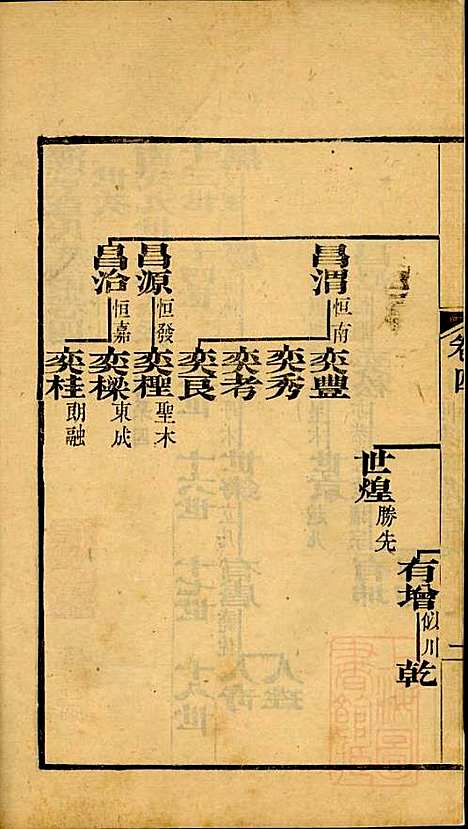 卷四
二
有增 似川
乾
世煌 勝先
昌渭 恒南
奕豐
奕秀
奕考
奕良
昌源 恒發
奕檉 聖木
昌治 恒嘉
奕樑 東成
奕桂 朗融